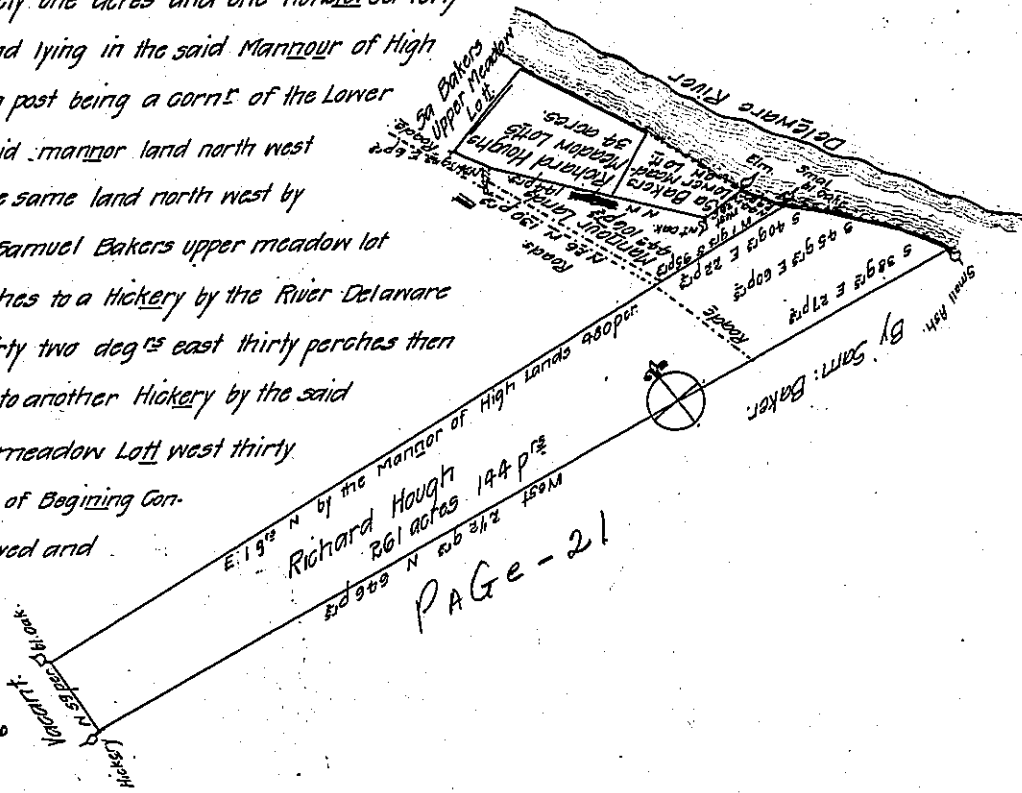 ely one acres and one
nd lying in the said Mannour of High
post being a corn.r of the Lower
id mannor land north west
e same land north west by
Samuel Bakers upper meadow lot
hes to a Hickery by the River Delaware
rty two deg rs east thirty perches then
to another Hickery by the said
meadow Lott west thirty
of Begining Con-
yed and
Sa Bakers
Upper Meadow
Lott.
Delaware River
Richard Houghs
Meadow Lotts
34 acres.
Sa Bakers
Lower Mead
Lott.
Elm
Mannour Lands
Roade
Roade
Small Ash.
S 40 grs E 22 prs
S 45 grs E 60 prs
S 38 grs E 27 prs
By Sam: Baker.
E. 1 grs N by the Mannor of High Lands 480 per.
Richard Hough
261 acres 144 prs
West 2 1/2 grs N 646 prs
PAGe - 21
Vacant.
N 59 per
W.Oak.
Hickery